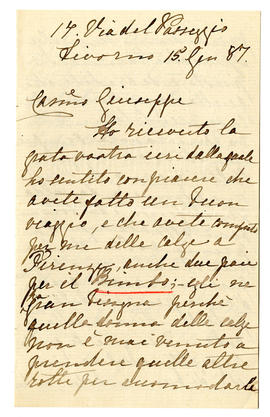 14. Via del Passeggio
Livorno 15. Gen 87.
Casmo Giuseppe
Ho ricevuto la
grata vostra ieri dalla quale
ho sentito con piacere che
avete fatto un buon
viaggio, e che avete comprato
per me delle calze a
Firenze, anche due paie
per el Bimbo; egli ne
ha gran bisogna perchè
quella donna delle calze
non è mai venuta a
prendere quelle altre
rotte per accomodarle